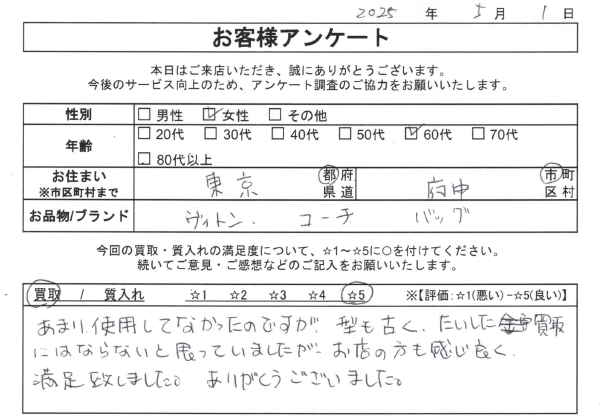 2025 年 5 月 1 日
お客様アンケート
本日はご来店いただき、誠にありがとうございます。
今後のサービス向上のため、アンケート調査のご協力をお願いいたします。
性別 □ 男性 ☑ 女性 □ その他
年齢 □ 20代 □ 30代 □ 40代 □ 50代 ☑ 60代 □ 70代
□ 80代以上
お住まい ※市区町村まで 東京 都府県道 府中 市町区村
お品物/ブランド ヴィトン. コーチ バッグ
今回の買取・質入れの満足度について、☆1～☆5に○を付けてください。
続いてご意見・ご感想などのご記入をお願いいたします。
買取 / 質入れ ☆1 ☆2 ☆3 ☆4 ☆5 ※【評価：☆1(悪い)－☆5(良い)】
あまり、使用してなかったのですが、型も古く、たいした買取
にはならないと思っていましたが、お店の方も感じ良く、
満足致しました。ありがとうございました。